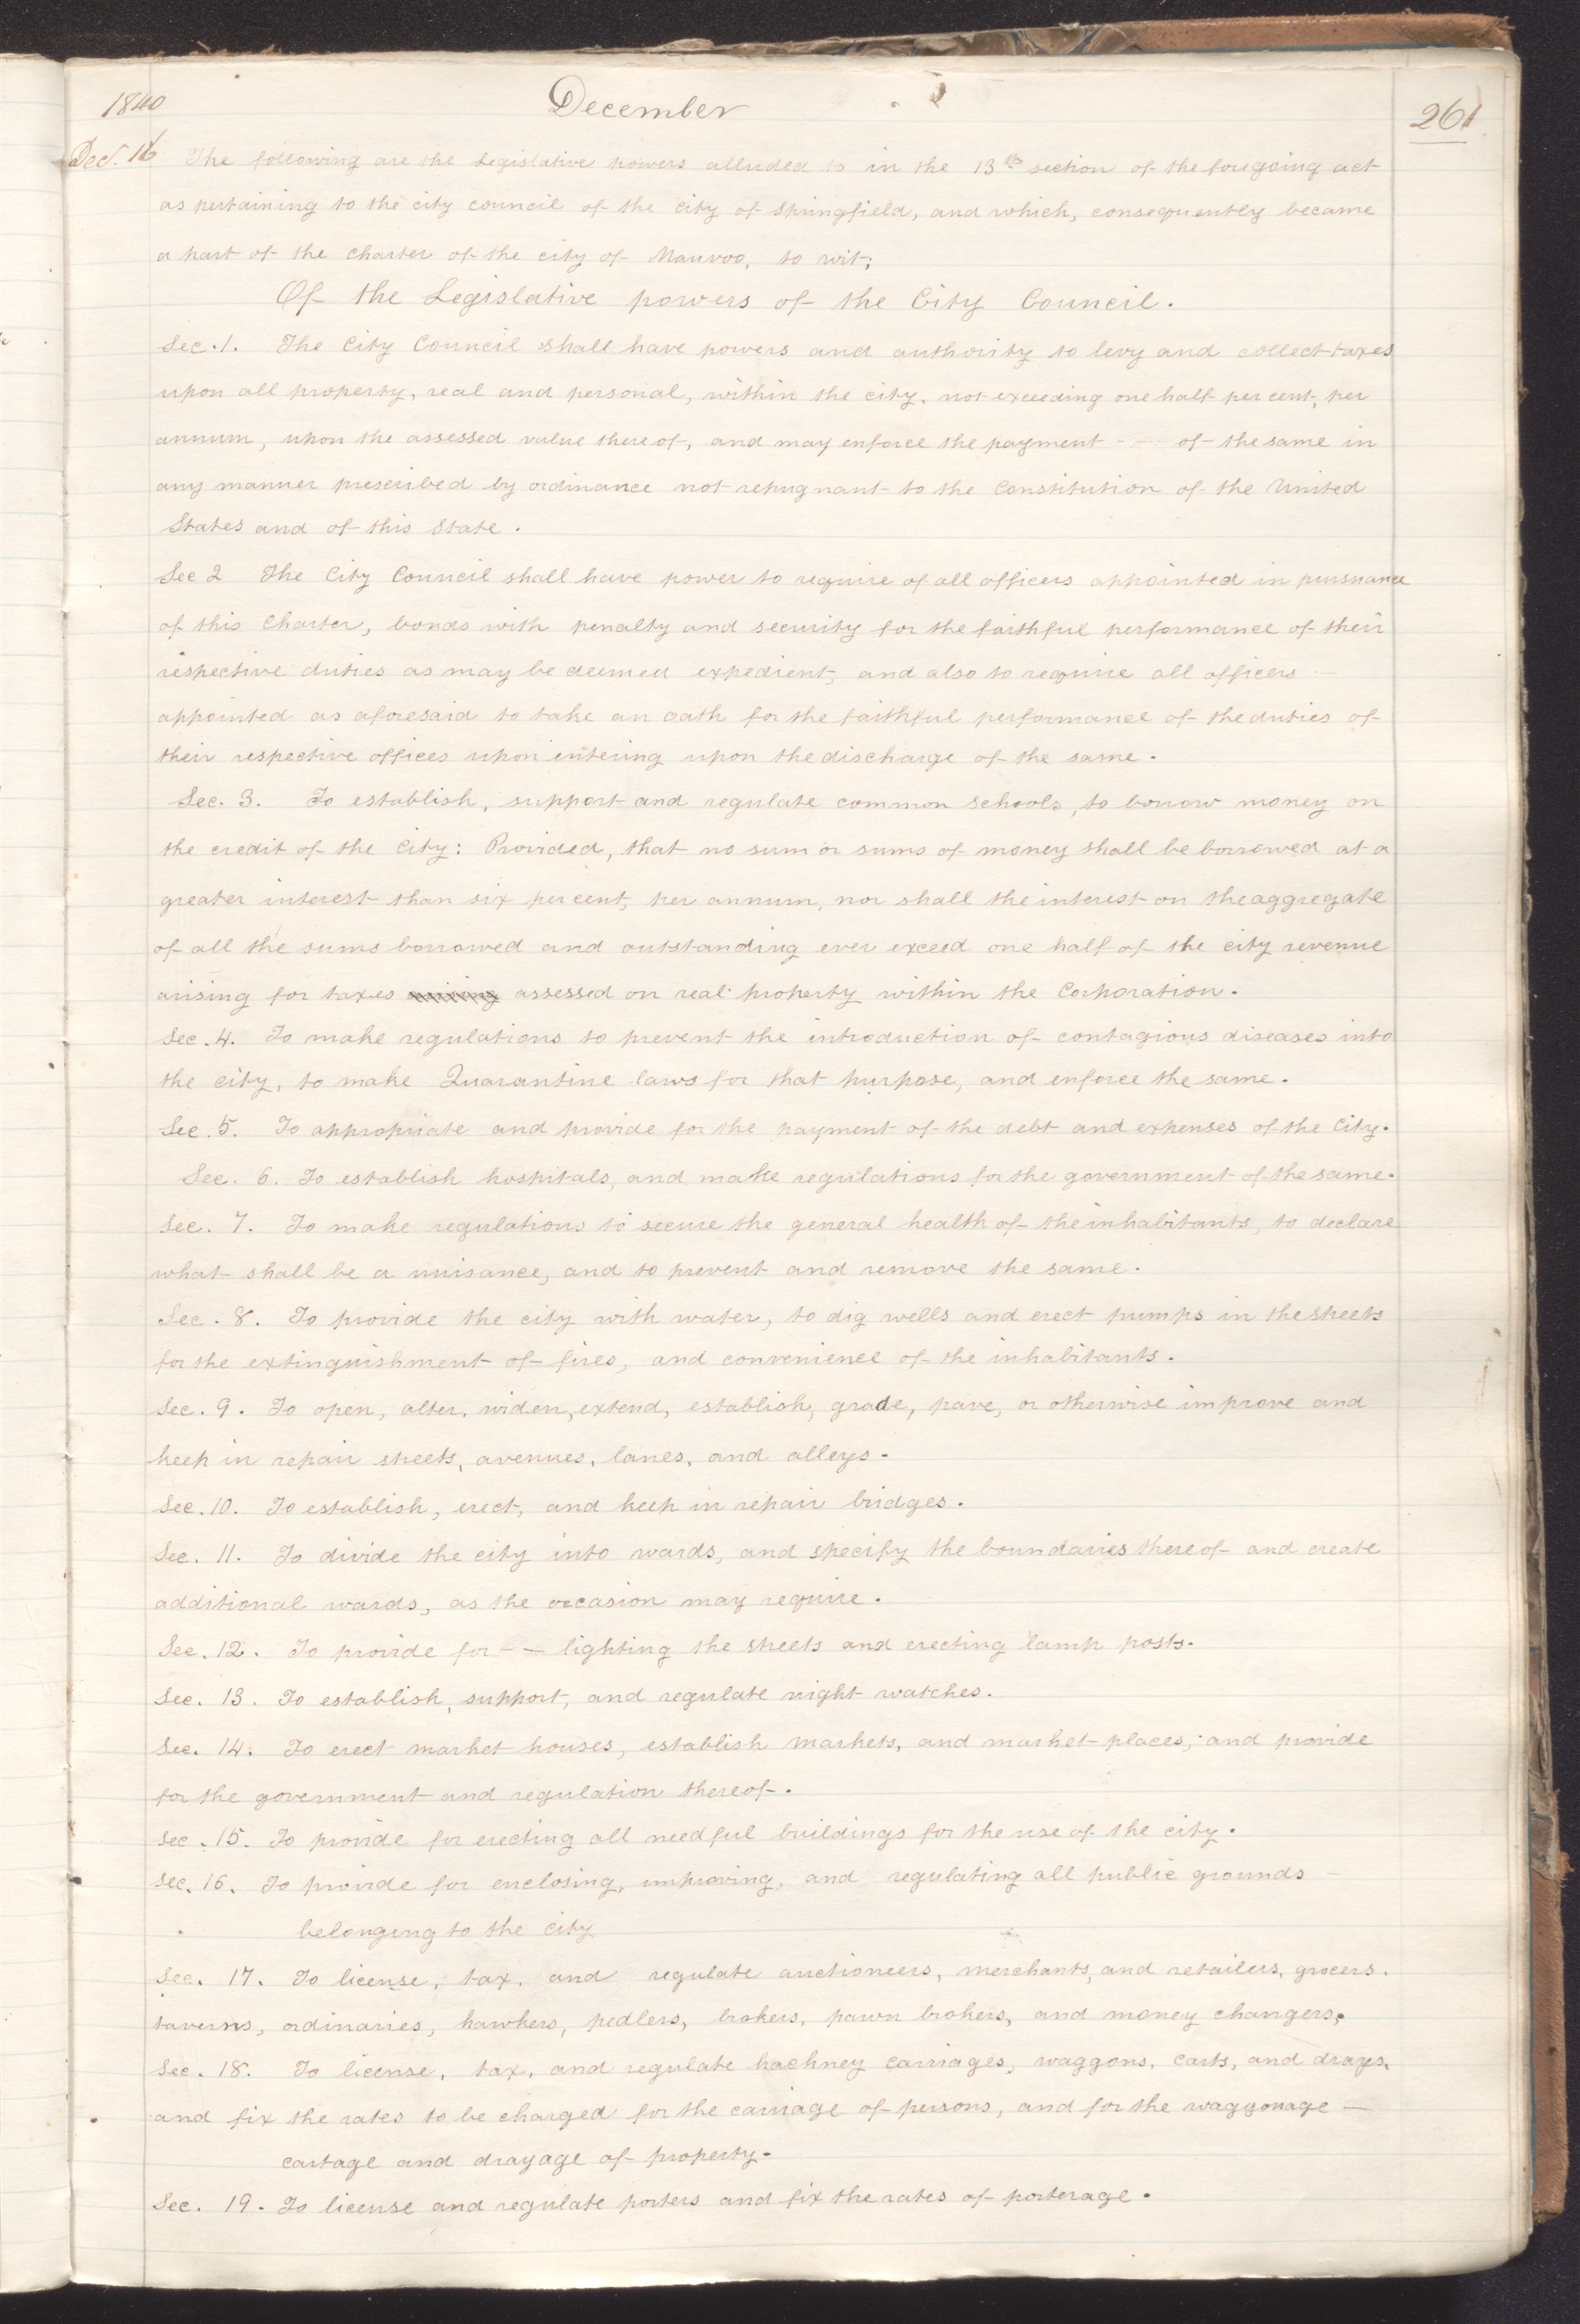 1840
December
261
Dec. 16 The following are the Legislative powers alluded to in the 13th section of the foregoing act
as pertaining to the city council of the city of Springfield, and which, consequently became
a part of the charter of the city of Nauvoo, to wit;
Of the Legislative powers of the City Council.
Sec. 1. The City Council shall have powers and authority to levy and collect taxes
upon all property, real and personal, within the city, not exceeding one half per cent, per
annum, upon the assessed value thereof, and may enforce the payment - - of the same in
any manner prescribed by ordinance not repugnant to the Constitution of the United
States and of this State.
Sec 2 The City Council shall have power to require of all officers appointed in pursuance
of this Charter, bonds with penalty and security for the faithful performance of their
respective duties as may be deemed expedient, and also to require all officers
appointed as aforesaid to take an oath for the faithful performance of the duties of
their respective offices upon entering upon the discharge of the same.
Sec. 3. To establish, support and regulate common schools, to borrow money on
the credit of the City: Provided, that no sum or sums of money shall be borrowed at a
greater interest than six per cent, per annum, nor shall the interest on the aggregate
of all the sums borrowed and outstanding ever exceed one half of the city revenue
arising for taxes arising assessed on real property within the Corporation.
Sec. 4. To make regulations to prevent the introduction of contagious diseases into
the city, to make Quarantine laws for that purpose, and enforce the same.
Sec. 5. To appropriate and provide for the payment of the debt and expenses of the City.
Sec. 6. To establish hospitals, and make regulations for the government of the same.
Sec. 7. To make regulations to secure the general health of the inhabitants, to declare
what shall be a nuisance, and to prevent and remove the same.
Sec. 8. To provide the city with water, to dig wells and erect pumps in the streets
for the extinguishment of fires, and convenience of the inhabitants.
Sec. 9. To open, alter, widen, extend, establish, grade, pave, or otherwise improve and
keep in repair streets, avenues, lanes, and alleys.
Sec. 10. To establish, erect, and keep in repair bridges.
Sec. 11. To divide the city into wards, and specify the boundaries thereof and create
additional wards, as the occasion may require.
Sec. 12. To provide for - - lighting the streets and erecting lamp posts.
Sec. 13. To establish, support, and regulate night watches.
Sec. 14. To erect market houses, establish markets, and market places, and provide
for the government and regulation thereof.
Sec. 15. To provide for erecting all needful buildings for the use of the city.
Sec. 16. To provide for enclosing, improving, and regulating all public grounds
belonging to the city
Sec. 17. To license, tax, and regulate auctioneers, merchants, and retailers, grocers.
taverns, ordinaries, hawkers, pedlers, brokers, pawn brokers, and money changers.
Sec. 18. To license, tax, and regulate hackney carriages, waggons, carts, and drays,
and fix the rates to be charged for the carriage of persons, and for the waggonage -
cartage and drayage of property.
Sec. 19. To license and regulate porters and fix the rates of porterage.